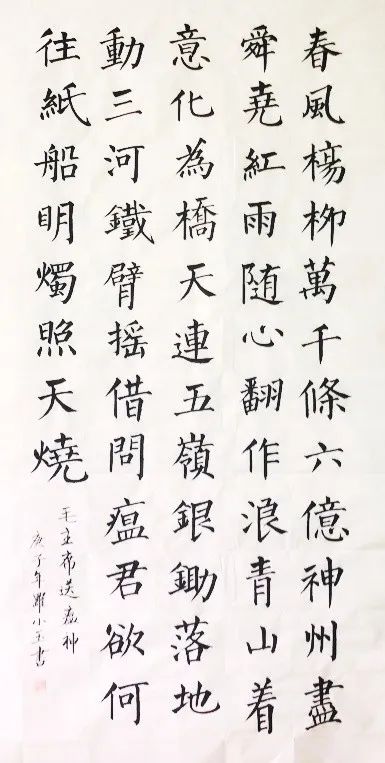 春風楊柳萬千條六億神州盡
舜堯紅雨随心翻作浪青山着
意化為橋天連五嶺銀鋤落地
動三河鐵臂摇借問瘟君欲何
往紙船明燭照天燒
毛主席送瘟神
庚子年羅小玉書